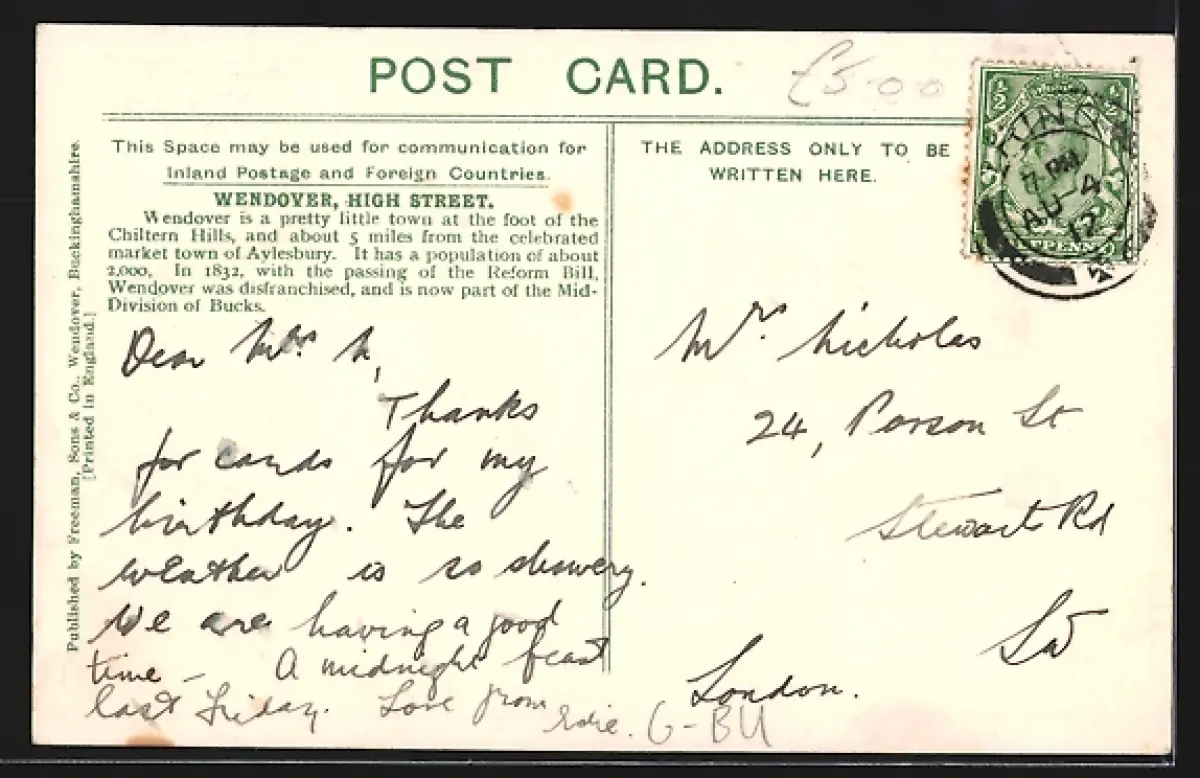 POST CARD.
£5-00
This Space may be used for communication for
Inland Postage and Foreign Countries.
WENDOVER, HIGH STREET.
Wendover is a pretty little town at the foot of the
Chiltern Hills, and about 5 miles from the celebrated
market town of Aylesbury. It has a population of about
2,000, In 1832, with the passing of the Reform Bill,
Wendover was disfranchised, and is now part of the Mid-
Division of Bucks.
Dear Mrs N,
Thanks
for cards for my
birthday. The
weather is so showery.
We are having a good
time - A midnight feast
last Friday. Love from
Edie.
G-BU
Published by Freeman, Sons & Co., Wendover, Buckinghamshire.
[Printed in England.]
THE ADDRESS ONLY TO BE
WRITTEN HERE.
½ ½
TRING
7 PM
AU 4
12
Mrs Nicholas
24, Parson St
Stewart Rd
SW
London.